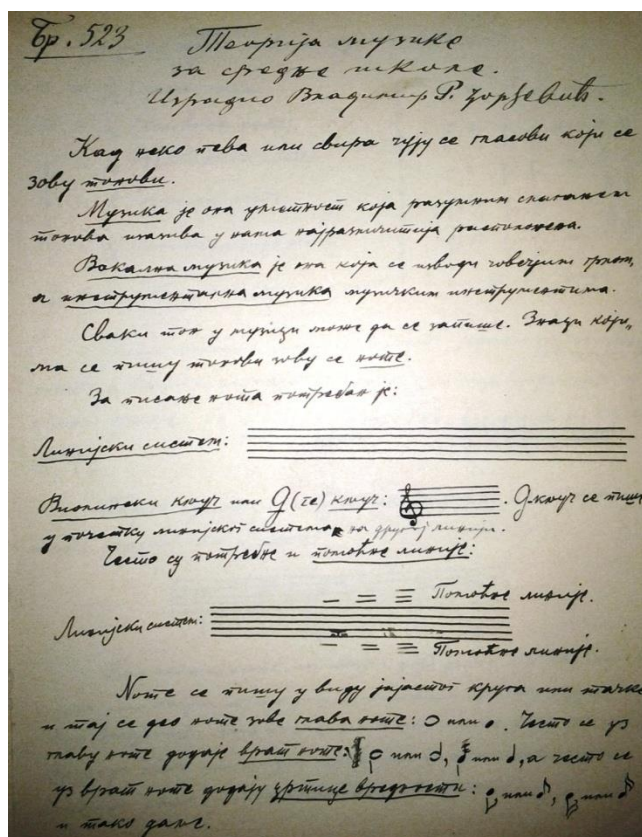 Бр. 523
Теорија музике
за средње школе.
Израдио Владимир Р. Ђорђевић.
Кад неко пева или свира чују се гласови који се
зову тонови.
Музика је она уметност која разумним слагањем
тонова изазива у нама најразличитија расположења.
Вокална музика је она која се изводи човечјим грлом,
а инструментална музика музичким инструментима.
Сваки тон у музици може да се запише. Знаци који-
ма се пишу тонови зову се ноте.
За писање нота потребан је:
Линијски систем:
Виолински кључ или G (ге) кључ: . G кључ се пише
у почетку линијског система на другој линији.
Често су потребне и помоћне линије:
Помоћне линије.
Линијски систем:
Помоћне линије.
Ноте се пишу у виду јајастог круга или тачке
и тај се део ноте зове глава ноте: или . Често се уз
главу ноте додаје врат ноте: или , или , а често се
уз врат ноте додају цртице вредности: или , или
и тако даље.